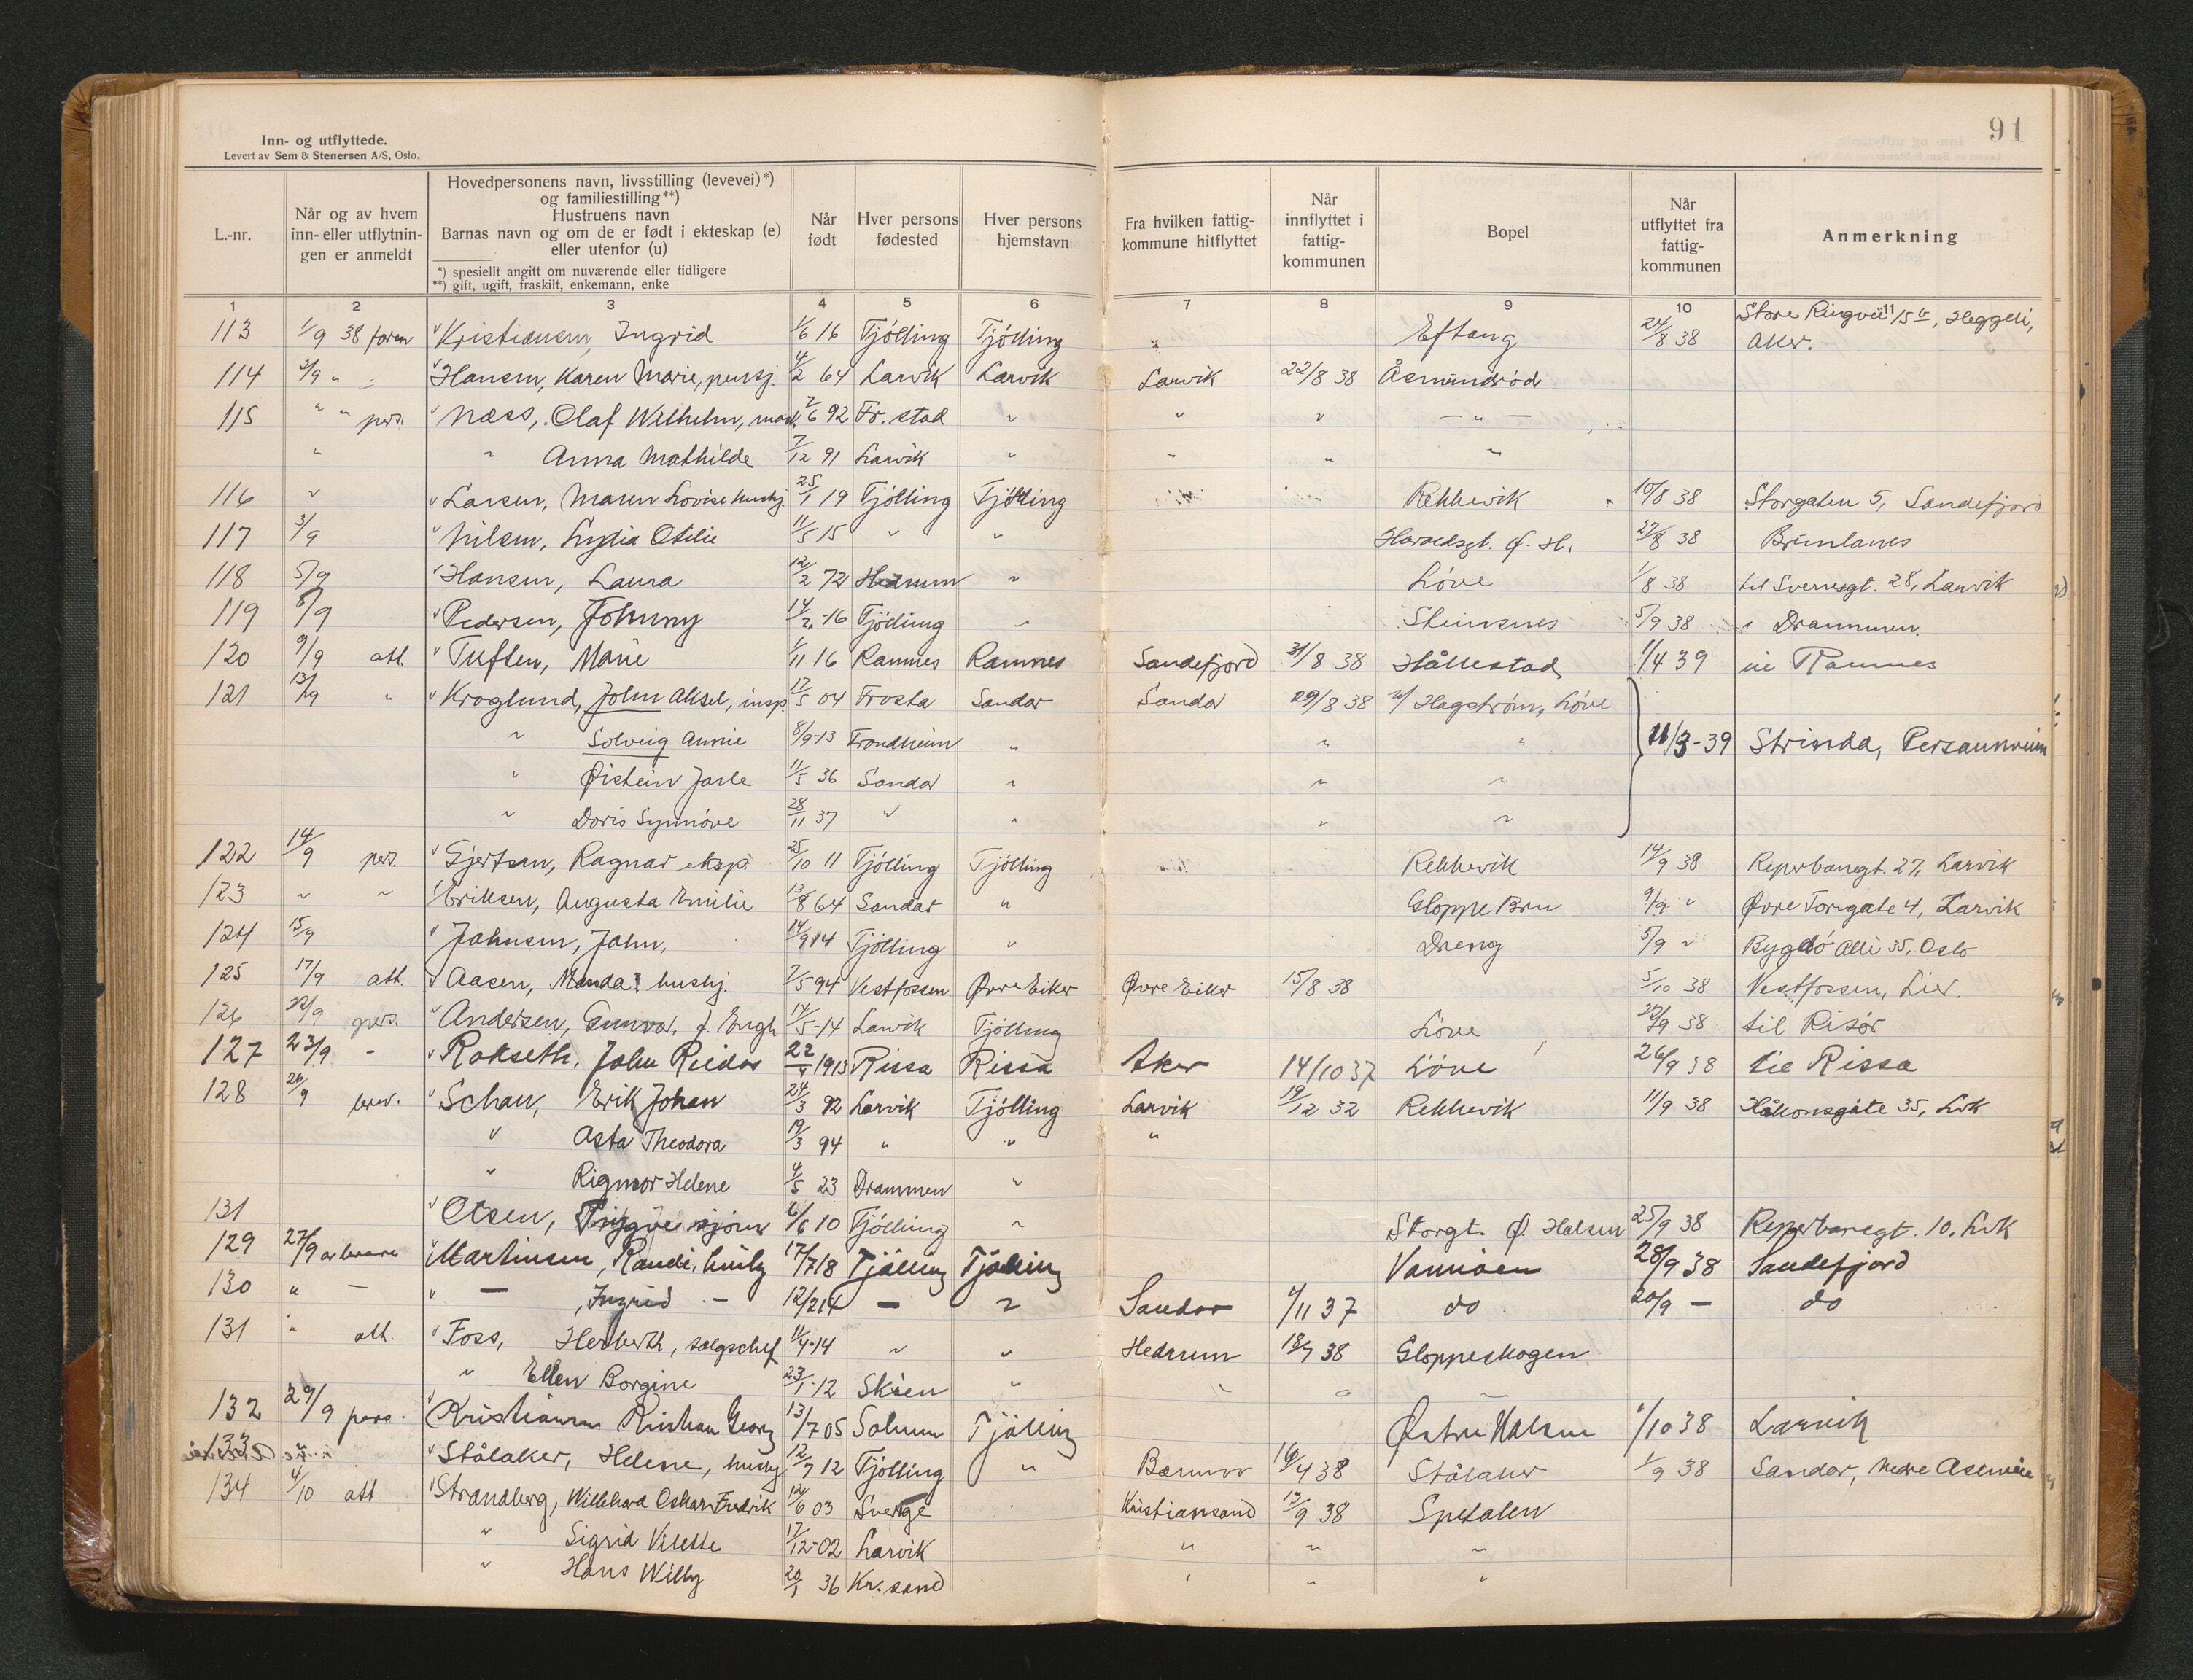 Inn- og utflyttede.
Levert av Sem & Stenersen A/S, Oslo.
91
L.-nr. Når og av hvem inn- eller utflytningen er anmeldt Hovedpersonens navn, livsstilling (levevei)*) og familiestilling**) Hustruens navn Barnas navn og om de er født i ekteskap (e) eller utenfor (u) Når født Hver persons fødested Hver persons hjemstavn Fra hvilken fattigkommune hitflyttet Når innflyttet i fattigkommunen Bopel Når utflyttet fra fattigkommunen Anmerkning
*) spesiellt angitt om nuværende eller tidligere
**) gift, ugift, fraskilt, enkemann, enke
1 2 3 4 5 6 7 8 9 10
113 1/9 38 Kristiansen, Ingrid 1/6 16 Tjölling Tjölling " Eftang 24/8 38 Store Ringvei 15 b, Heggeli, Aker.
114 3/9 " Hansen, Karen Marie, pensj. 4/2 64 Larvik Larvik Larvik 22/8 38 Åsmundröd
115 " " pers. Næss, Olaf Wilhelm, 7/6 92 Fr.stad " " " — " —
" " Anna Mathilde 7/12 91 Larvik " " " "
116 " Larsen, Maren Lovise hushj. 25/1 19 Tjölling Tjölling Rekkevik 10/8 38 Storgaten 5, Sandefjord
117 3/9 Nilsen, Lydia Otilie 11/5 15 " " Haraldsgt. Ø. H. 27/8 38 Brunlanes
118 5/9 Hansen, Laura 12/2 72 Hedrum " Löve 1/8 38 til Sverresgt. 28, Larvik
119 8/9 Pedersen, Johnny 14/2 -16 Tjölling " Steinsnes 5/9 38 " Drammen.
120 9/9 att. Tuften, Marie 1/11 16 Ramnes Ramnes Sandefjord 31/8 38 Hällestad 1/4 39 til Ramnes
121 13/9 " Kroglund, John Aksel, insp. 17/5 04 Frosta Sandar Sandar 29/8 38 v/ Hagström, Löve
" Solveig Annie 8/9-13 Trondheim " " " 11/3-39 Strinda, Persaunveien
" Øistein Jarle 11/5 36 Sandar " " "
" Doris Synnöve 28/11 37 " " " "
122 14/9 pers. Gjertsen, Ragnar eksp. 25/10 11 Tjölling Tjölling Rekkevik 14/9 38 Reperbanegt. 27, Larvik
123 " " Eriksen, Augusta Emilie 13/8 64 Sandar " Gloppe Bru 9/9 " Øvre Torvgate 4, Larvik
124 15/9 Johnsen, John, 14/9 14 Tjölling " Dreng 5/9 " Bygdö Allé 35, Oslo
125 17/9 att. Aasen, Manda hushj. 7/5 94 Vestfossen Øvre Eiker Øvre Eiker 15/8 38 5/10 38 Vestfossen, Lier.
126 22/9 pers. Andersen, Gunvor, f. Engh 14/5-14 Larvik Tjölling Löve 22/9 38 til Risör
127 23/9 - Rokseth, John Reidar 22/4 1913 Rissa Rissa Aker 14/10 37 Löve 26/9 38 til Rissa
128 26/9 brev. Schau, Erik Johan 24/3 92 Larvik Tjölling Larvik 19/12 32 Rekkevik 11/9 38 Håkonsgate 35, Lvk
" Asta Theodora 19/3 94 " " "
" Rigmor Helene 4/5 23 Drammen "
131 Olsen, Trygve sjöm. 6/6 10 Tjölling " Storgt. Ø. Halsen 25/9 38 Reperbanegt. 10. Lvk
129 27/9 Martinsen, Randi, hushj. 17/7 18 Tjölling Tjölling 28/9 38 Sandefjord
130 " — " — , Ingrid — 12/2 14 — " Sandar 4/11 37 do 20/9 — do
131 " att. Foss, Herberth, salgschef 11/4-14 " " Hedrum 18/7 38 Gloppeskogen
" Ellen Borgine 23/1-12 Skien " " " "
132 29/9 pers. Kristiansen Kristian Georg 13/7 05 Solum Tjölling Østre Halsen 1/10 38 Larvik
133 Stålaker, Helene, hushj. 12/7 12 Tjölling " Bærum 16/4 38 Stålaker 1/9 38 Sandar, Nedre Åsenvei
134 4/10 att. Strandberg, Willehard Oskar Fredrik 12/6 03 Sverige Kristiansand 13/9 38 Spetalen
" Sigrid Vilette 17/12-02 Larvik " " "
" Hans Willy 20/1 36 Kr.sand " " "